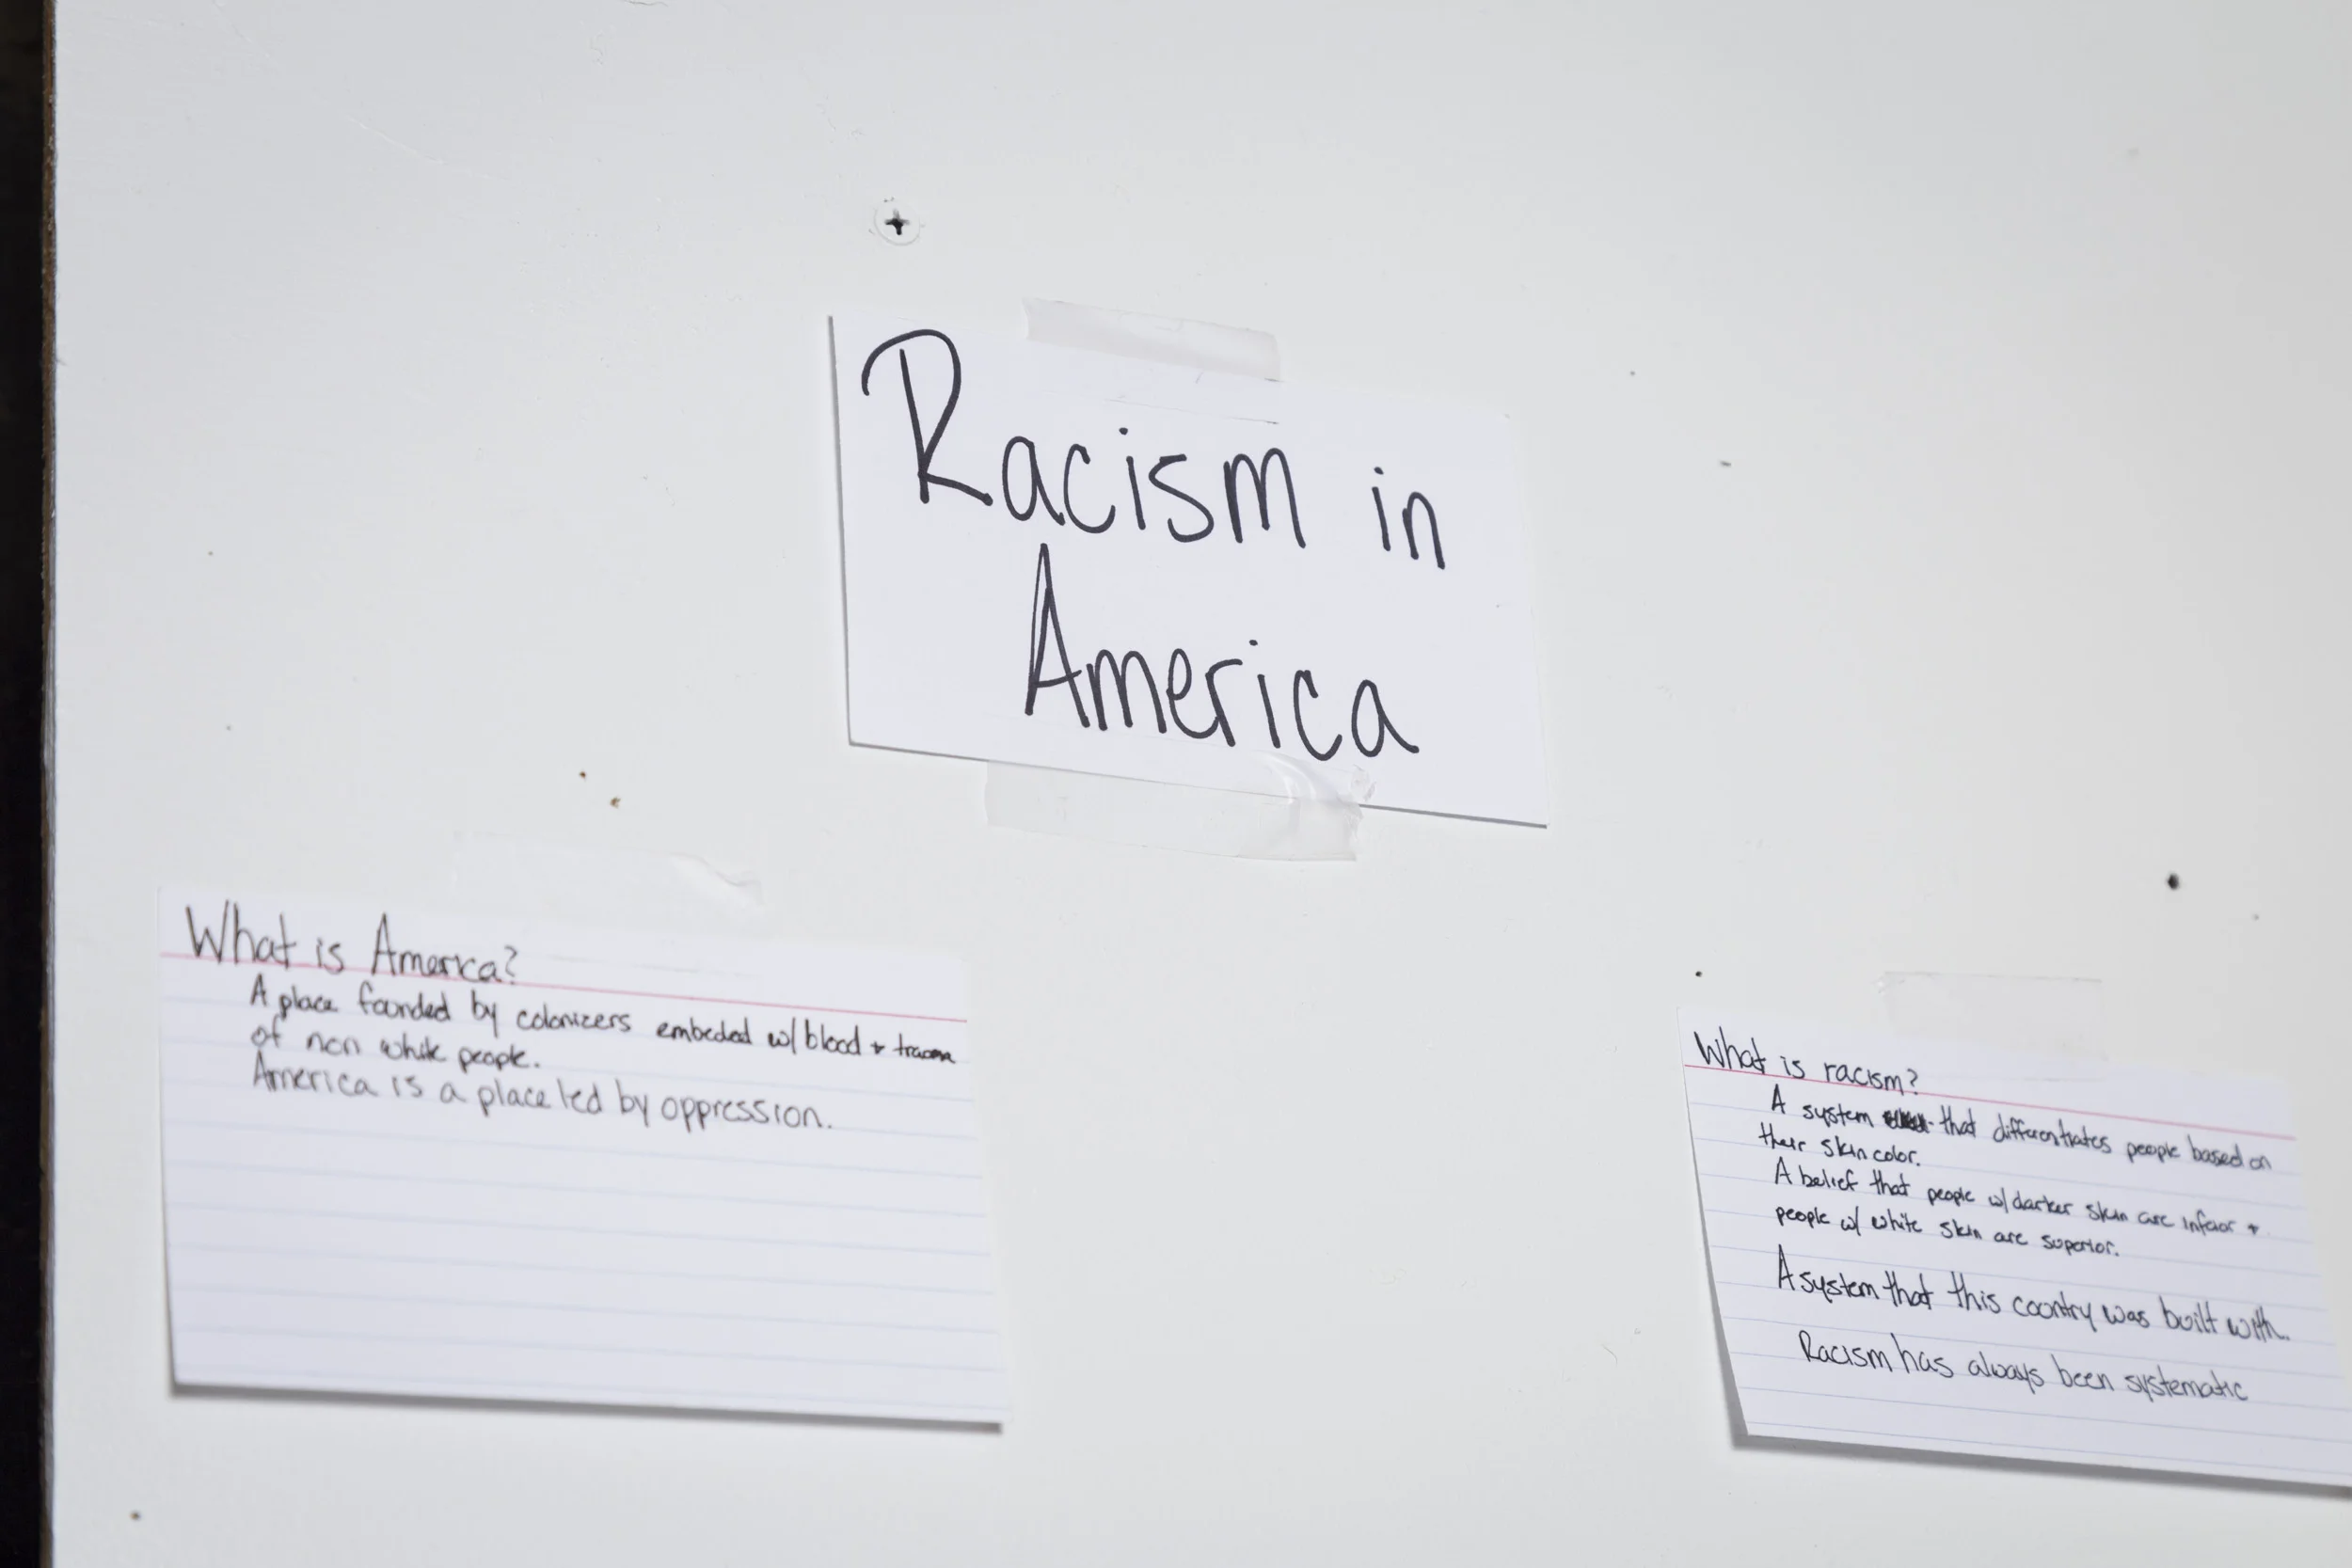 Racism in
America
What is America?
A place founded by colonizers embeded w/ blood + trauma
of non white people.
America is a place led by oppression.
What is racism?
A system that differentiates people based on
their skin color.
A belief that people w/ darker skin are inferior +
people w/ white skin are superior.
A system that this country was built with.
Racism has always been systematic